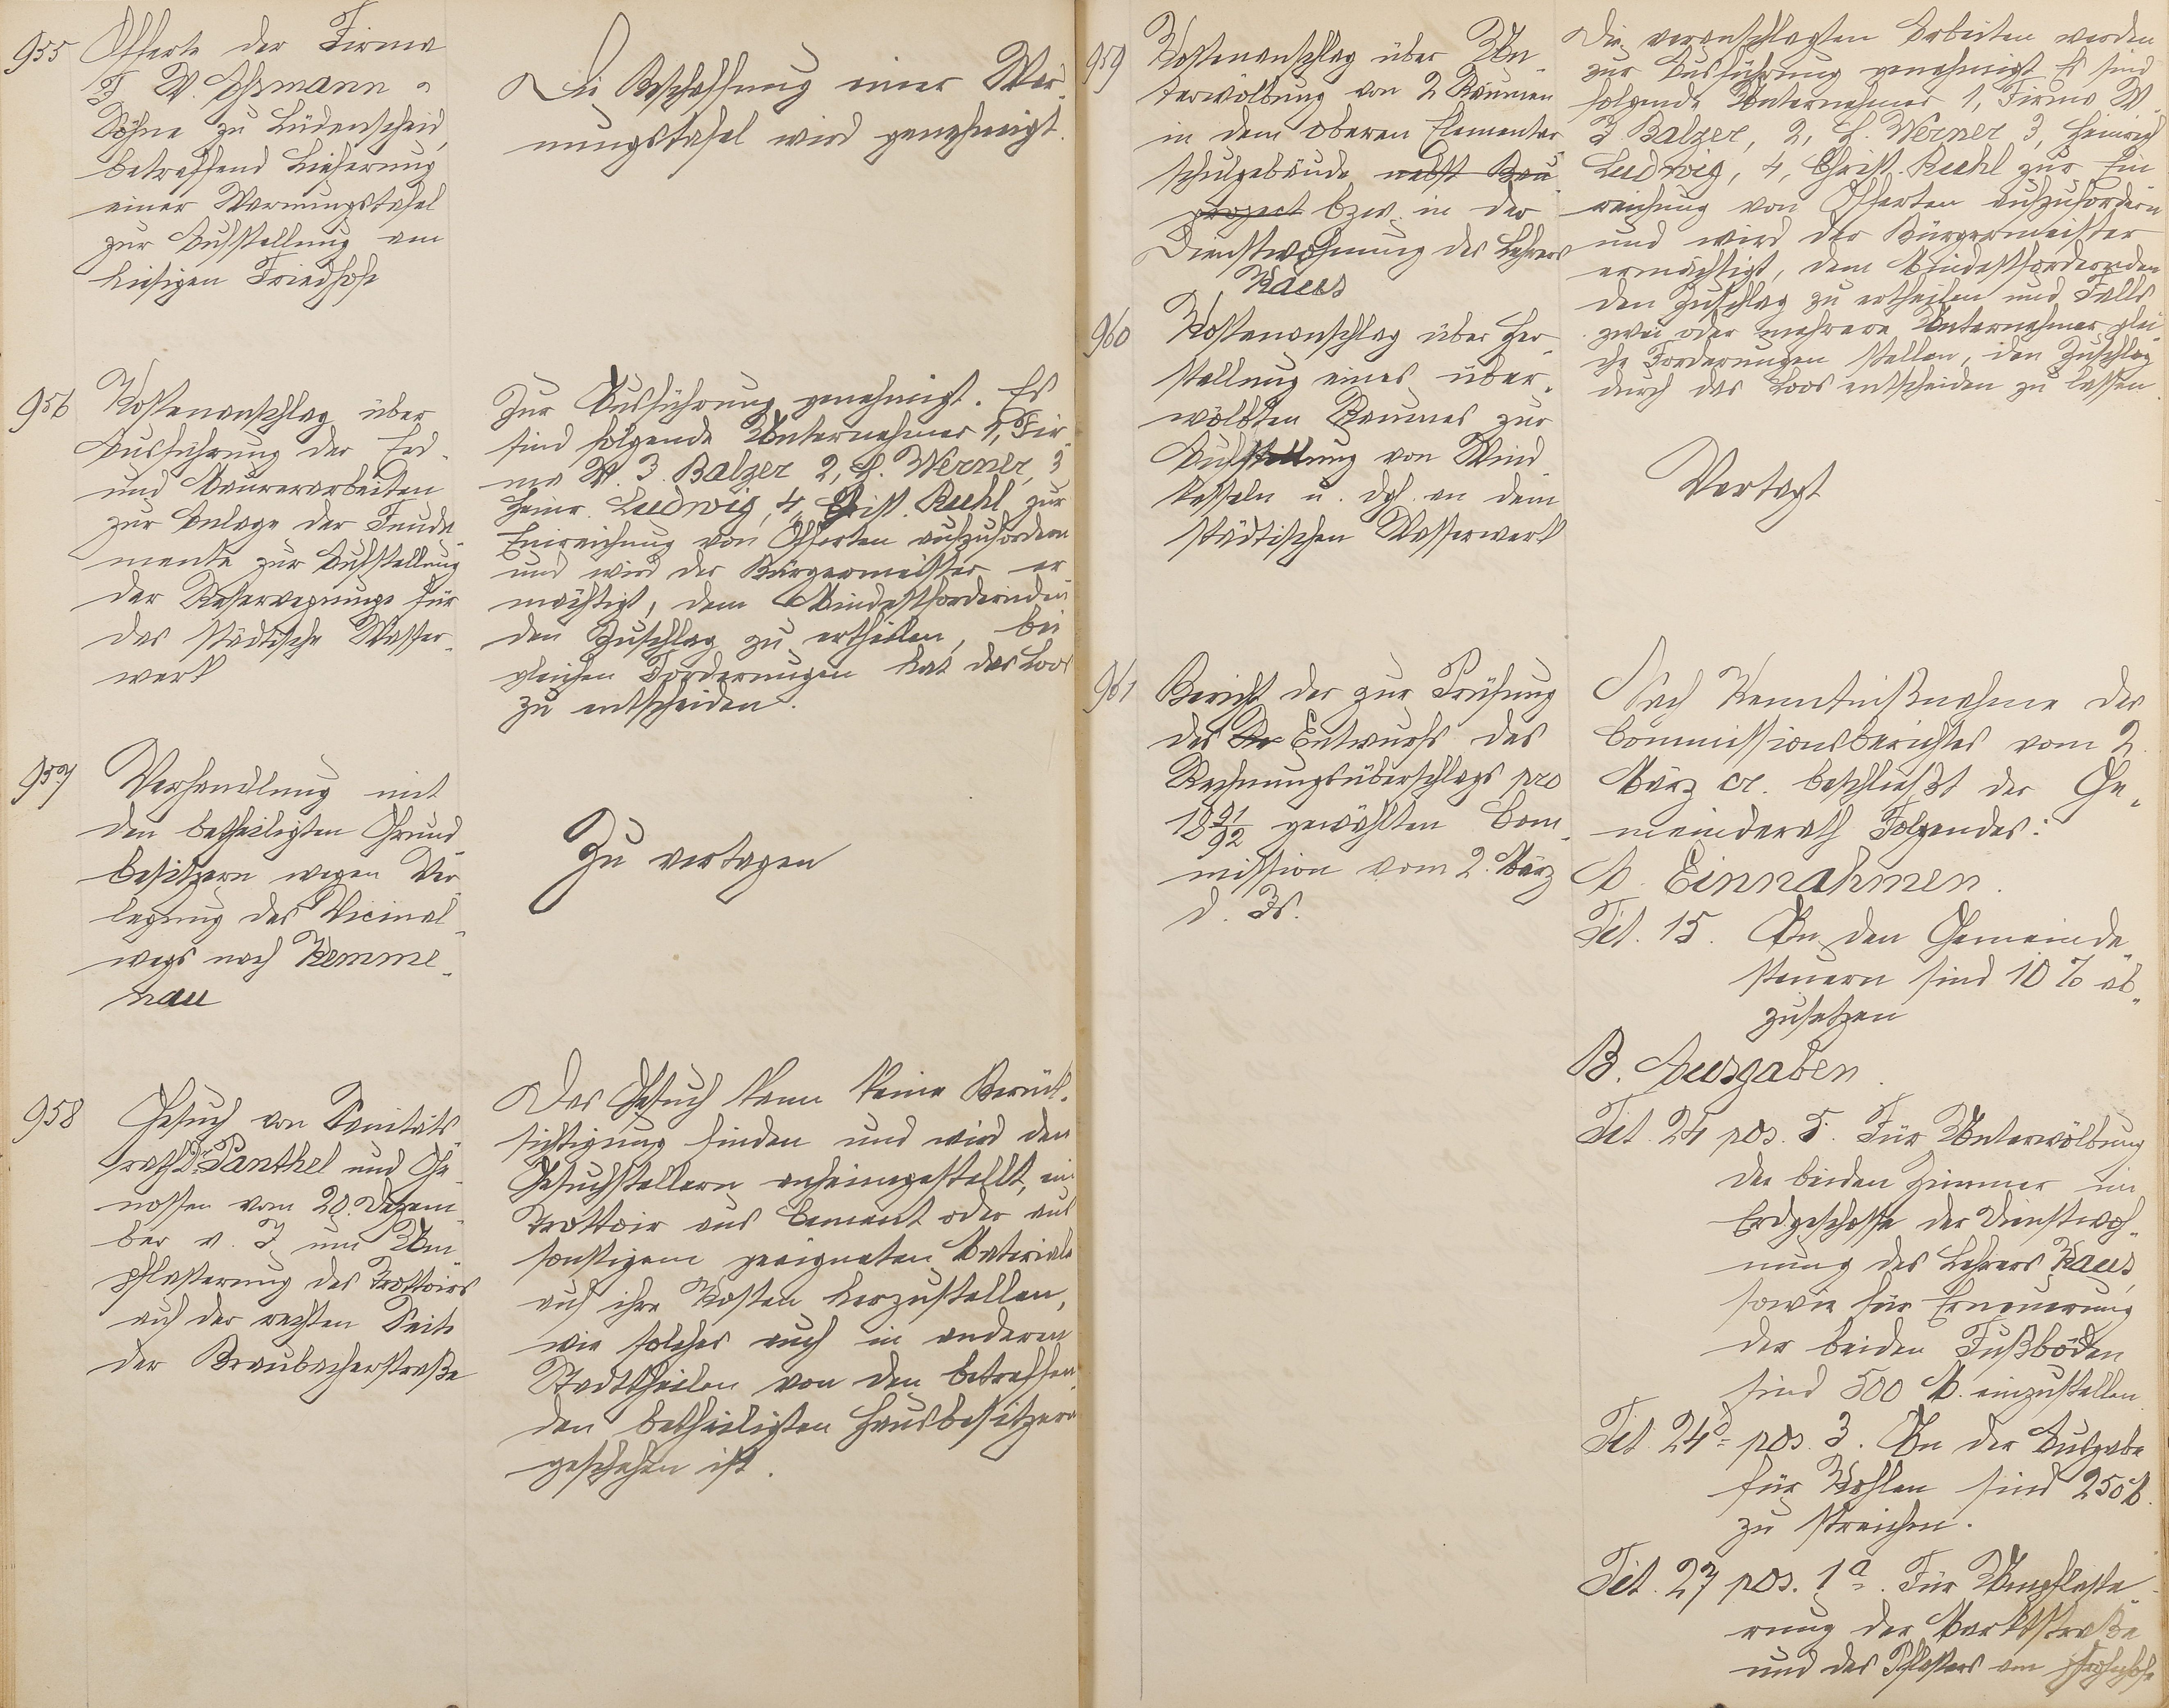 955
Offerte der Firma
F. W. Assmann &
Söhne zu Lüdenscheid,
betreffend Lieferung
einer Warnungstafel
zur Aufstellung am
hiesigen Friedhofe
Die Beschaffung einer War-
nungstafel wird genehmigt.
956
Kostenanschlag über
Ausführung der Erd-
und Maurerarbeiten
zur Anlage der Funda-
mente zur Aufstellung
der für
das städtische Wasser-
werk
Zur Ausführung genehmigt. Es
sind folgende Unternehmer 1, Fir-
ma W. J. Balzer 2, H. Werner, 3
Heinr. Ludwig, 4, Christ. Ruhl zur
Einreichung von Offerten aufzufordern
und wird der Bürgermeister er-
mächtigt, dem Mindestfordernden
den Zuschlag zu ertheilen, bei
gleichen Forderungen hat das Loos
zu entscheiden.
957
Verhandlung mit
den betheiligten Grund-
besitzern wegen Ver-
legung des Vicinal-
wegs nach Kemme-
nau
Zu vertagen
958
Gesuch von Sanitäts-
rath Dr. Panthel und Ge-
nossen vom 20. Dezem-
ber v. J. um Um-
pflasterung des Trottoirs
auf der rechten Seite
der Braubacherstraße
Das Gesuch kann keine Berück-
sichtigung finden und wird den
Gesuchstellern anheimgestellt, ein
Trottoir aus Cement oder aus
sonstigem geeigneten Material
auf ihre Kosten herzustellen,
wie solches auch in anderen
Stadttheilen von den betreffen-
den betheiligten Hausbesitzern
geschehen ist.
959
Kostenanschlag über Un-
terwölbung von 2 Räumen
in dem oberen Elementar-
schulgebäude nebst Bau-
project bzw. in der
Dienstwohnung des Lehrers
Kaus
Die veranschlagten Arbeiten werden
zur Ausführung genehmigt. Es sind
folgende Unternehmer 1, Firma W.
J Balzer, 2, H. Werner 3, Heinrich
Ludwig, 4, Christ. Ruhl zur Ein-
reichung von Offerten aufzufordern
und wird der Bürgermeister
ermächtigt, dem Mindestfordernden
den Zuschlag zu ertheilen und Falls
zwei oder mehrere Unternehmer glei-
che Forderungen stellen, den Zuschlag
durch das Loos entscheiden zu lassen.
960
Kostenanschlag über Her-
stellung eines über-
wölbten Raumes zur
Aufstellung von Wind-
kesseln u. dgl. an dem
städtischen Wasserwerk
Vertagt
961
Bericht der zur Prüfung
des Entwurfs des
Rechnungsüberschlags pro
1891/92 gewählten Com-
mission vom 2. März
d. Js.
Nach Kenntnißnahme des
Commissionsberichtes vom 2.
März cr. beschließt der Ge-
meinderath Folgendes:
A. Einnahmen.
Tit. 15. An den Gemeinde-
steuern sind 10 % ab-
zusetzen
B. Ausgaben.
Tit. 24 pos. 5. Für Unterwölbung
der beiden Zimmer im
Erdgeschosse der Dienstwoh-
nung des Lehrers Kaus,
sowie für Erneuerung
der beiden Fußböden
sind 500 M. einzustellen.
Tit. 24d pos. 3. An der Ausgabe
für Kohlen sind 250 M.
zu streichen.
Tit. 27 pos. 1a. Für Umpflaste-
rung der Marktstraße
und des Pflasters am